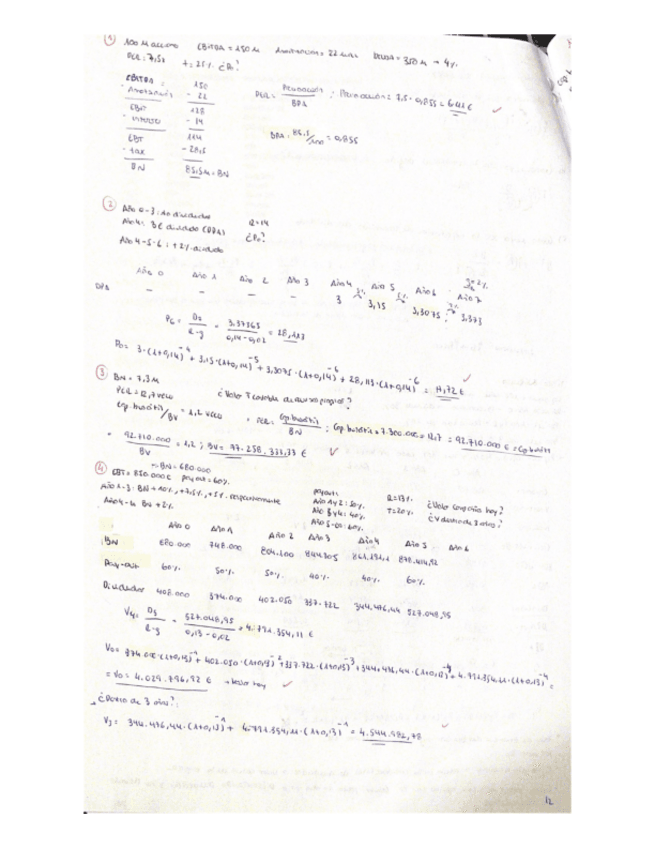 ① 100 M acciones EBITDA = 150 M Amortización = 22 mill. DEUDA = 350 M → 4%
PER = 7,5x t = 25% ¿P₀?
EBITDA 150
- Amortización - 22
EBIT 128
- intereses - 14
EBT 114
- tax - 28,5
BN 85,5 M = BN
PER = / BPA ; = 7,5 · 0,855 = 6,41 €
BPA = 85,5/100 = 0,855
② Año 0-3: no dividendos R = 14
Año 4: 3€ dividendo (DPA) ¿P₀?
Año 4-5-6: dividendo
Año 0 Año 1 Año 2 Año 3 Año 4 Año 5 Año 6 Año 7
DPA - - - - 3 3,15 3,3075 3,373
P₆ = D₇/R-g = 3,37365/0,14-0,02 = 28,113
P₀ = 3·(1+0,14)⁻⁴ + 3,15·(1+0,14)⁻⁵ + 3,3075·(1+0,14)⁻⁶ + 28,113·(1+0,14)⁻⁶ = 17,72 €
③ BN = 7,3 M ¿Valor Contable de sus recursos propios?
PER = 12,7 veces
Cap. bursátil/BV = 1,2 veces
PER = Cap. bursátil/BN ; Cap. bursátil = 7.300.000 · 12,7 = 92.710.000 € = Cap bursátil
92.710.000/BV = 1,2 ; BV = 77.258.333,33 €
④ EBT = 850.000 € → BN = 680.000 pay out = 60%
Año 1-3: BN +10%, +7,5%, +5% respectivamente
Año 4-∞ BN +2%
payout: R = 13% ¿Valor compañía hoy?
Año 1 y 2: 50% T = 20% ¿Y dentro de 3 años?
Año 3 y 4: 40%
Año 5-∞: 60%
Año 0 Año 1 Año 2 Año 3 Año 4 Año 5 Año 6
BN 680.000 748.000 804.100 844.305 861.191,1 878.414,92
Pay-out 60% 50% 50% 40% 40% 60%
Dividendos 408.000 374.000 402.050 337.722 344.476,44 527.048,95
V₄ = D₅/R-g = 527.048,95/0,13-0,02 = 4.791.354,11 €
V₀ = 374.000·(1+0,13)⁻¹ + 402.050·(1+0,13)⁻² + 337.722·(1+0,13)⁻³ + 344.476,44·(1+0,13)⁻⁴ + 4.791.354,11·(1+0,13)⁻⁴ =
= V₀ = 4.029.796,92 € → Valor hoy
¿Dentro de 3 años?:
V₃ = 344.476,44·(1+0,13)⁻¹ + 4.791.354,11·(1+0,13)⁻¹ = 4.544.982,78
12